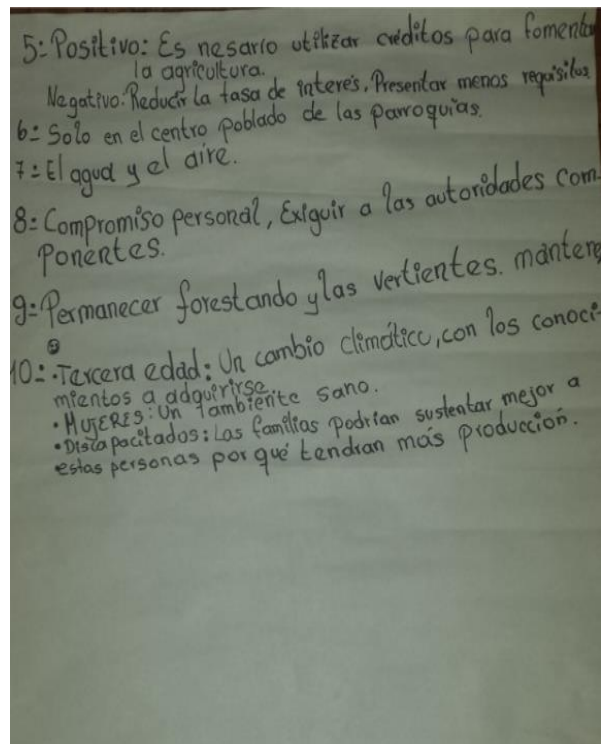 5:- Positivo: Es nesario utilizar créditos para fomentar
la agricultura.
Negativo: Reducir la tasa de interés, Presentar menos requisitos
6:- Solo en el centro poblado de las parroquias.
7:- El agua y el aire.
8:- Compromiso personal, Exiguir a las autoridades com-
ponentes.
9:- Permanecer forestando y las vertientes. mantene
10:- • Tercera edad: Un cambio climático, con los conoci-
mientos a adquirirse.
• MUJERES: Un ambiente sano.
• Discapacitados: Las familias podrian sustentar mejor a
estas personas por qué tendran más producción.